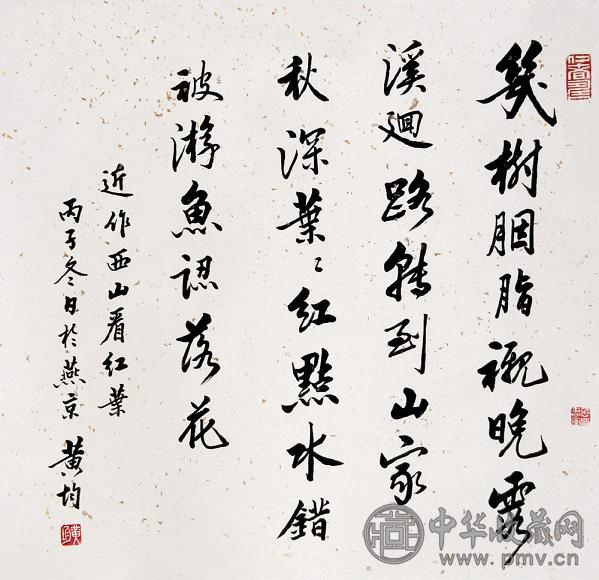 幾樹胭脂襯晚霞
溪迴路轉到山家
秋深葉〻紅點水錯
被游魚認落花
近作西山看紅葉
丙子冬日於燕京 黄均
中华收藏网
www.pmv.cn